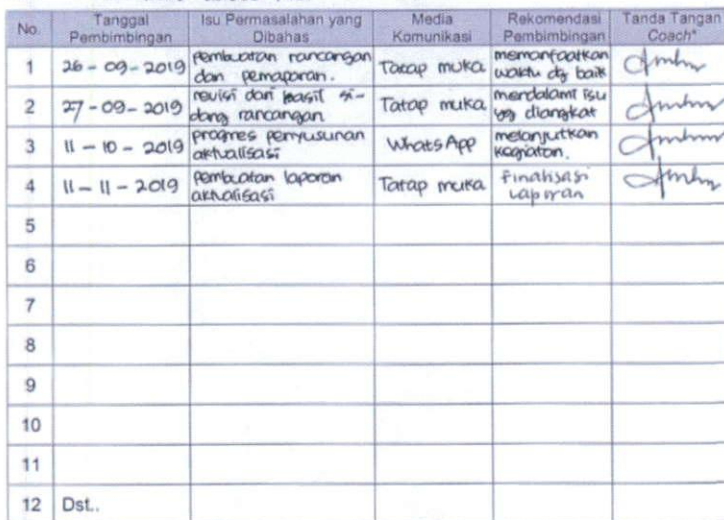 No. Tanggal Pembimbingan Isu Permasalahan yang Dibahas Media Komunikasi Rekomendasi Pembimbingan Tanda Tangan Coach*
1 26 - 09 - 2019 pembuatan rancangan dan pemaparan. Tatap muka memanfaatkan waktu dg baik
2 27 - 09 - 2019 revisi dari hasil si- dang rancangan Tatap muka mendalami isu yg diangkat
3 11 - 10 - 2019 progres penyusunan aktualisasi WhatsApp melanjutkan kegiatan.
4 11 - 11 - 2019 pembuatan laporan aktualisasi Tatap muka Finalisasi laporan
5
6
7
8
9
10
11
12 Dst..